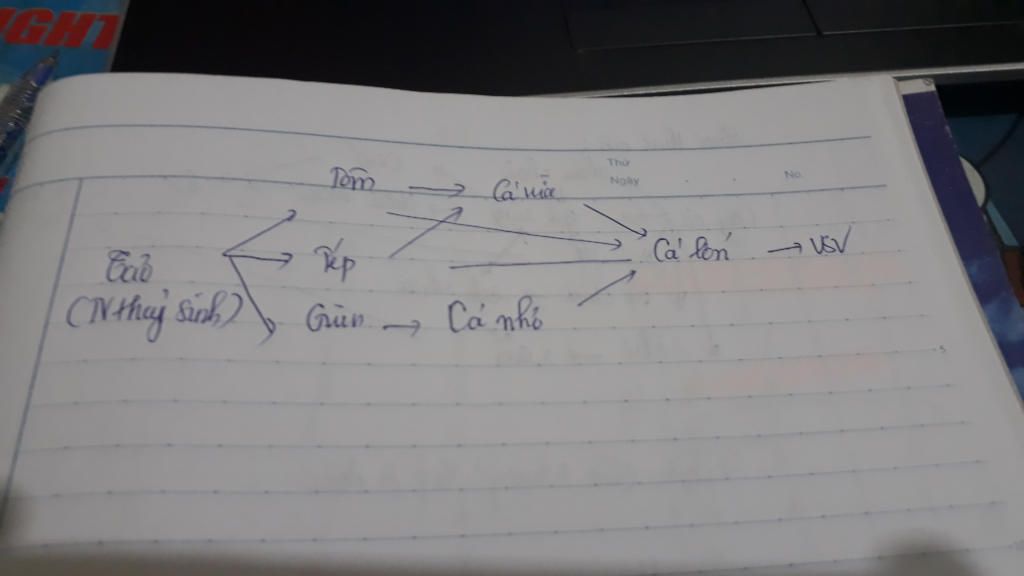 IGHT
Thứ
Ngày
No.
Tôm → Cá vừa
Tảo
(TV thuỷ sinh)
Tép
Cá lớn → VSV
Giun → Cá nhỏ